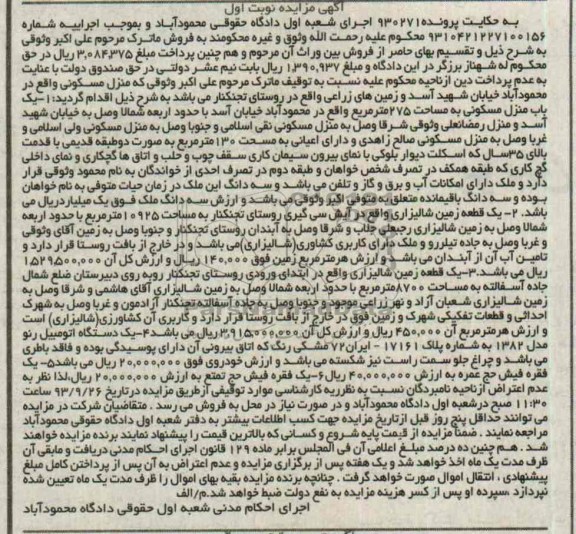 آگهی مزایده نوبت اول
به حکایت پرونده ۹۳۰۲۷۱ اجرای شعبه اول دادگاه حقوقی محمودآباد و بموجب اجراییه شماره
۹۳۱۰۴۲۱۲۲۷۱۰۰۱۵۶ محکوم علیه رحمت الله وثوق و غیره محکومند به فروش ماترک مرحوم علی اکبر وثوقی
به شرح ذیل و تقسیم بهای حاصر از فروش بین وراث آن مرحوم و هم چنین پرداخت مبلغ ۳,۰۸۴,۳۷۵ ریال در حق
محکوم له شهناز برزگر در این دادگاه و مبلغ ۱,۳۹۰,۹۳۷ ریال بابت نیم عشر دولتی در حق صندوق دولت با عنایت
به عدم پرداخت دین ازناحیه محکوم علیه نسبت به توقیف ماترک مرحوم علی اکبر وثوقی که منزل مسکونی واقع در
محمودآباد خیابان شهید آسد و زمین های زراعی واقع در روستای تجنکنار می باشد به شرح ذیل اقدام گردید:۱-یک
باب منزل مسکونی به مساحت ۲۷۵مترمربع واقع در محمودآباد خیابان آسد با حدود اربعه شمالا وصل به خیابان شهید
آسد و منزل رمضانعلی وثوقی شرقا وصل به منزل مسکونی نقی اسلامی و جنوبا وصل به منزل مسکونی ولی اسلامی و
غربا وصل به منزل مسکونی صالح زاهدی و دارای اعیانی به مساحت ۱۳۰مترمربع به صورت دوطبقه قدیمی با قدمت
بالای ۳۵سال که اسکلت دیوار بلوکی با نمای بیرون سیمان کاری سقف چوب و حلب و اتاق ها گچکاری و نمای داخلی
گچ کاری که طبقه همکف در تصرف شخص خواهان و طبقه دوم در تصرف احدی از خواندگان به نام محمود وثوقی قرار
دارد و ملک دارای امکانات آب و برق و گاز و تلفن می باشد و سه دانگ این ملک در زمان حیات متوفی به نام خواهان
بوده و سه دانگ باقیمانده متعلق به متوفی اکبر وثوقی می باشد و ارزش سه دانگ ملک فوق یک میلیاردریال می
باشد. ۲- یک قطعه زمین شالیزاری واقع در آیش سی گیری روستای تجنکنار به مساحت ۱۰۹۲۵مترمربع با حدود اربعه
شمالا وصل به زمین شالیزاری رجبعلی جلاب و شرقا وصل به آبندان روستای تجنکنار و جنوبا وصل به زمین آقای وثوقی
و غربا وصل به جاده تیلررو و ملک دارای کاربری کشاورزی(شالیزاری)می باشد و در خارج از بافت روستا قرار دارد و
تامین آب آن از آبندان می باشد و ارزش هرمترمربع زمین فوق ۱۴۰,۰۰۰ ریال و ارزش کل آن ۱,۵۲۹,۵۰۰,۰۰۰
ریال می باشد.۳-یک قطعه زمین شالیزاری واقع در ابتدای ورودی روستای تجنکنار روبه روی دبیرستان ضلع شمال
جاده آسفالته به مساحت ۸۷۰۰مترمربع با حدود اربعه شمالا وصل به زمین شالیزاری آقای هاشمی و شرقا وصل به
زمین شالیزاری شعبان آزاد و نهر زراعی موجود و جنوبا وصل به جاده آسفالته تجنکنار آزادمون و غربا وصل به شهرک
احداثی و قطعات تفکیکی شهرک و زمین فوق در خارج از بافت روستا قرار دارد و کاربری آن کشاورزی(شالیزاری) است
و ارزش هرمترمربع آن ۴۵۰,۰۰۰ ریال و ارزش کل آن ۳,۹۱۵,۰۰۰,۰۰۰ریال می باشد۴-یک دستگاه اتومبیل رنو
مدل ۱۳۸۲ به شماره پلاک ۱۷۱۶۱ - ایران۷۲ مشکی رنگ که اتاق بیرونی آن دارای پوسیدگی بوده و فاقد باطری
می باشد و چراغ جلو سمت راست نیز شکسته می باشد و ارزش خودروی فوق ۲۰,۰۰۰,۰۰۰ ریال می باشد۵- یک
فقره فیش حج عمره به ارزش ۴۰,۰۰۰,۰۰۰ ریال۶-یک فقره فیش حج تمتع به ارزش ۲۰,۰۰۰,۰۰۰ ریال،لذا نظر به
عدم اعتراض ازناحیه نامبردگان نسبت به نظریه کارشناسی موارد توقیفی ازطریق مزایده درتاریخ ۹۳/۹/۲۶ ساعت
۱۱:۳۰ صبح درشعبه اول دادگاه محمودآباد و در صورت نیاز در محل به فروش می رسد . متقاضیان شرکت در مزایده
می توانند حداقل پنج روز قبل ازتاریخ مزایده جهت کسب اطلاعات بیشتر به دفتر شعبه اول دادگاه حقوقی محمودآباد
مراجعه نمایند . ضمنا مزایده از قیمت پایه شروع و کسانی که بالاترین قیمت را پیشنهاد نمایند برنده مزایده خواهند
شد . هم چنین ده درصد مبلغ اعلامی آن فی المجلس برابر ماده ۱۲۹ قانون اجرای احکام مدنی دریافت و مابقی آن
ظرف مدت یک ماه اخذ خواهد شد و یک هفته پس از برگزاری مزایده و عدم اعتراض به آن پس از پرداختن کامل مبلغ
پیشنهادی ، انتقال اموال صورت خواهد گرفت . چنانچه برنده مزایده بقیه بهای اموال را ظرف مدت یک ماه تعیین شده
نپردازد ،سپرده او پس از کسر هزینه مزایده به نفع دولت ضبط خواهد شد.م/الف
اجرای احکام مدنی شعبه اول حقوقی دادگاه محمودآباد